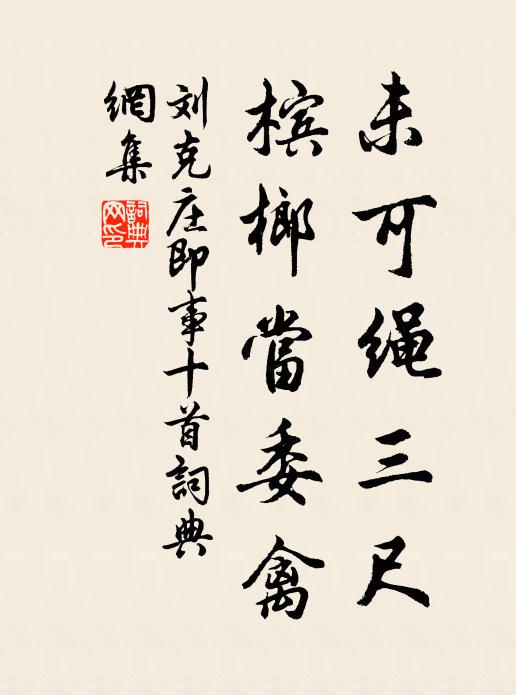 未可绳三尺
槟榔當委禽
刘克庄即事十首詞典
網集
詞典
网印